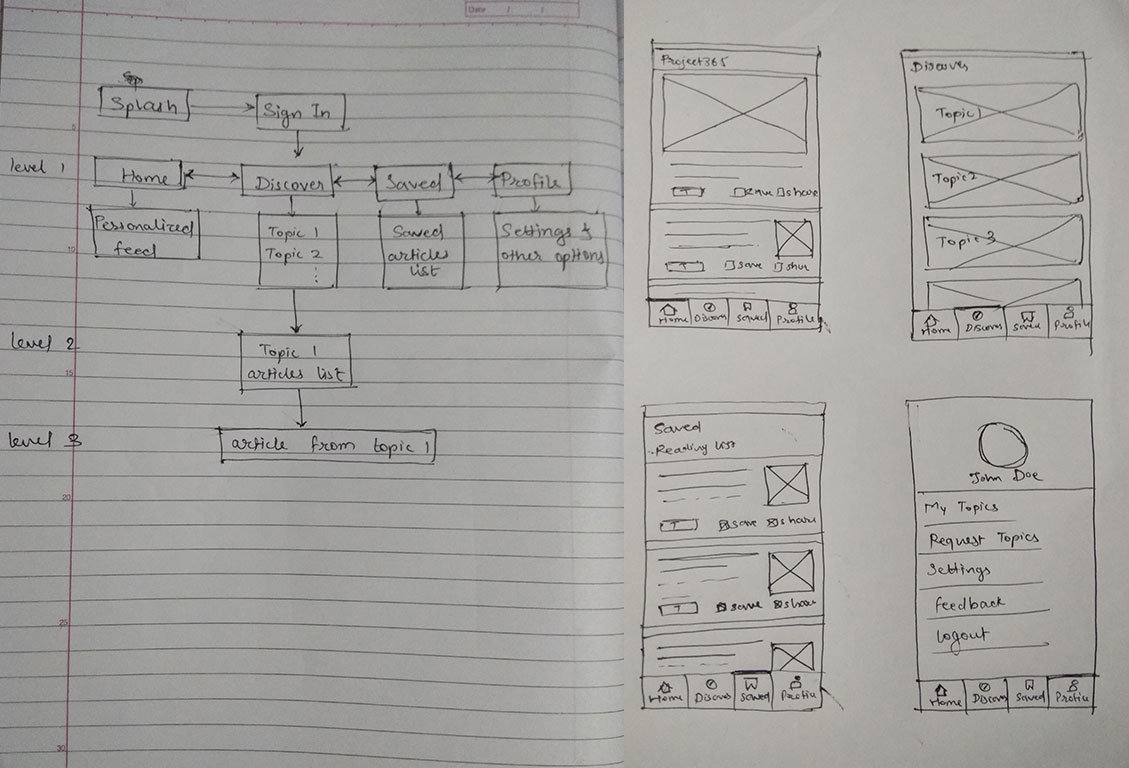 Date / /
Splash
Sign In
level 1
Home
Discover
Saved
Profile
Personalized
feed
Topic 1
Topic 2
Saved
articles
list
Settings &
other options
level 2
Topic 1
articles list
level 3
article from topic 1
5
10
15
20
25
30
Project365
T
save share
T
save shar
Home Discover Saved Profile
Discover
Topic 1
Topic 2
Topic 3
Home Discover Saved Profile
Saved
Reading list
T
save share
T
save share
Home Discover Saved Profile
John Doe
My Topics
Request Topics
Settings
feedback
logout
Home Discover Saved Profile